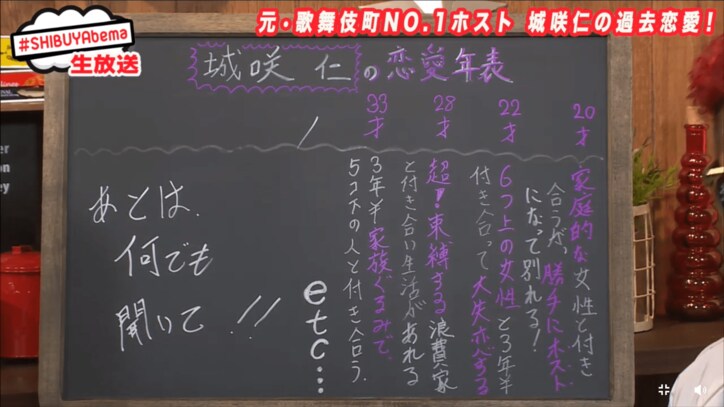 #SHIBUYAbema
生放送
元・歌舞伎町NO.1ホスト 城咲仁の過去恋愛!
城咲 仁の恋愛年表
20才
家庭的な女性と付き
合うが、勝手にホスト
になって別れる!
22才
6つ上の女性と3年半
付き合って大失恋する
28才
超!束縛する浪費家
と付き合い生活があれる
33才
3年半家族ぐるみで、
5コ下の人と付き合う.
etc...
あとは、
何でも
開いて!!